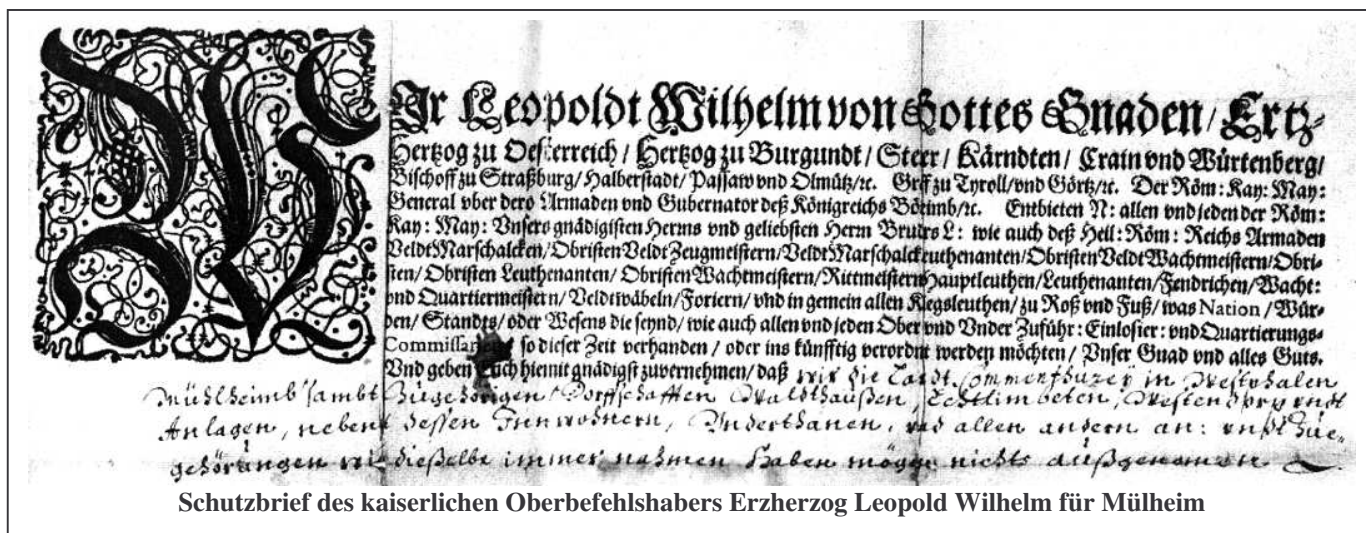 WIr Leopoldt Wilhelm von Gottes Gnaden / Ertz-
Hertzog zu Oesterreich / Hertzog zu Burgundt / Steer / Kärndten / Crain vnd Würtenberg /
Bischoff zu Straßburg / Halberstadt / Passaw vnd Olmütz / ꝛc. Graf zu Tyroll / vnd Görtz / ꝛc. Der Röm: Kay: May:
General vber dero Armaden vnd Gubernator deß Königreichs Böheimb / ꝛc. Entbieten N: allen vnd jeden der Röm:
Kay: May: Vnsers gnädigisten Herrns vnd geliebsten Herrn Brudrs L: wie auch deß Heil: Röm: Reichs Armaden
VeldtMarschalcken / Obristen VeldtZeugmeistern / VeldtMarschalckLeuthenanten / Obristen Veldt Wachtmeistern / Obri-
sten / Obristen Leuthenanten / Obristen Wachtmeistern / Rittmeistern Hauptleuthen / Leuthenanten / Fendrichen / Wacht:
vnd Quartiermeistern / Veldtwäbeln / Foriern / vnd in gemein allen Kriegsleuthen / zu Roß vnd Fuß / was Nation / Wür-
den / Standts / oder Wesens die seynd / wie auch allen vnd jeden Ober vnd Vnder Zuführ: Einlosier: vnd Quartierungs-
Commissarien so dieser Zeit verhanden / oder ins künfftig verordnt werden möchten / Vnser Gnad vnd alles Guts.
Vnd geben Euch hiemit gnädigst zuvernehmen / daß wir die Landt Commenthurey in Westphalen
Mühlheimb sambt Zugehörigen Dorffschafften Waldthaußen, Westendorp vndt
Anlagen, nebent dessen Innwohnern, Vnderthanen, vnd allen andern an: vndt Zue-
gehörungen wie dieselbe immer nahmen haben möge nichts außgenomen
Schutzbrief des kaiserlichen Oberbefehlshabers Erzherzog Leopold Wilhelm für Mülheim